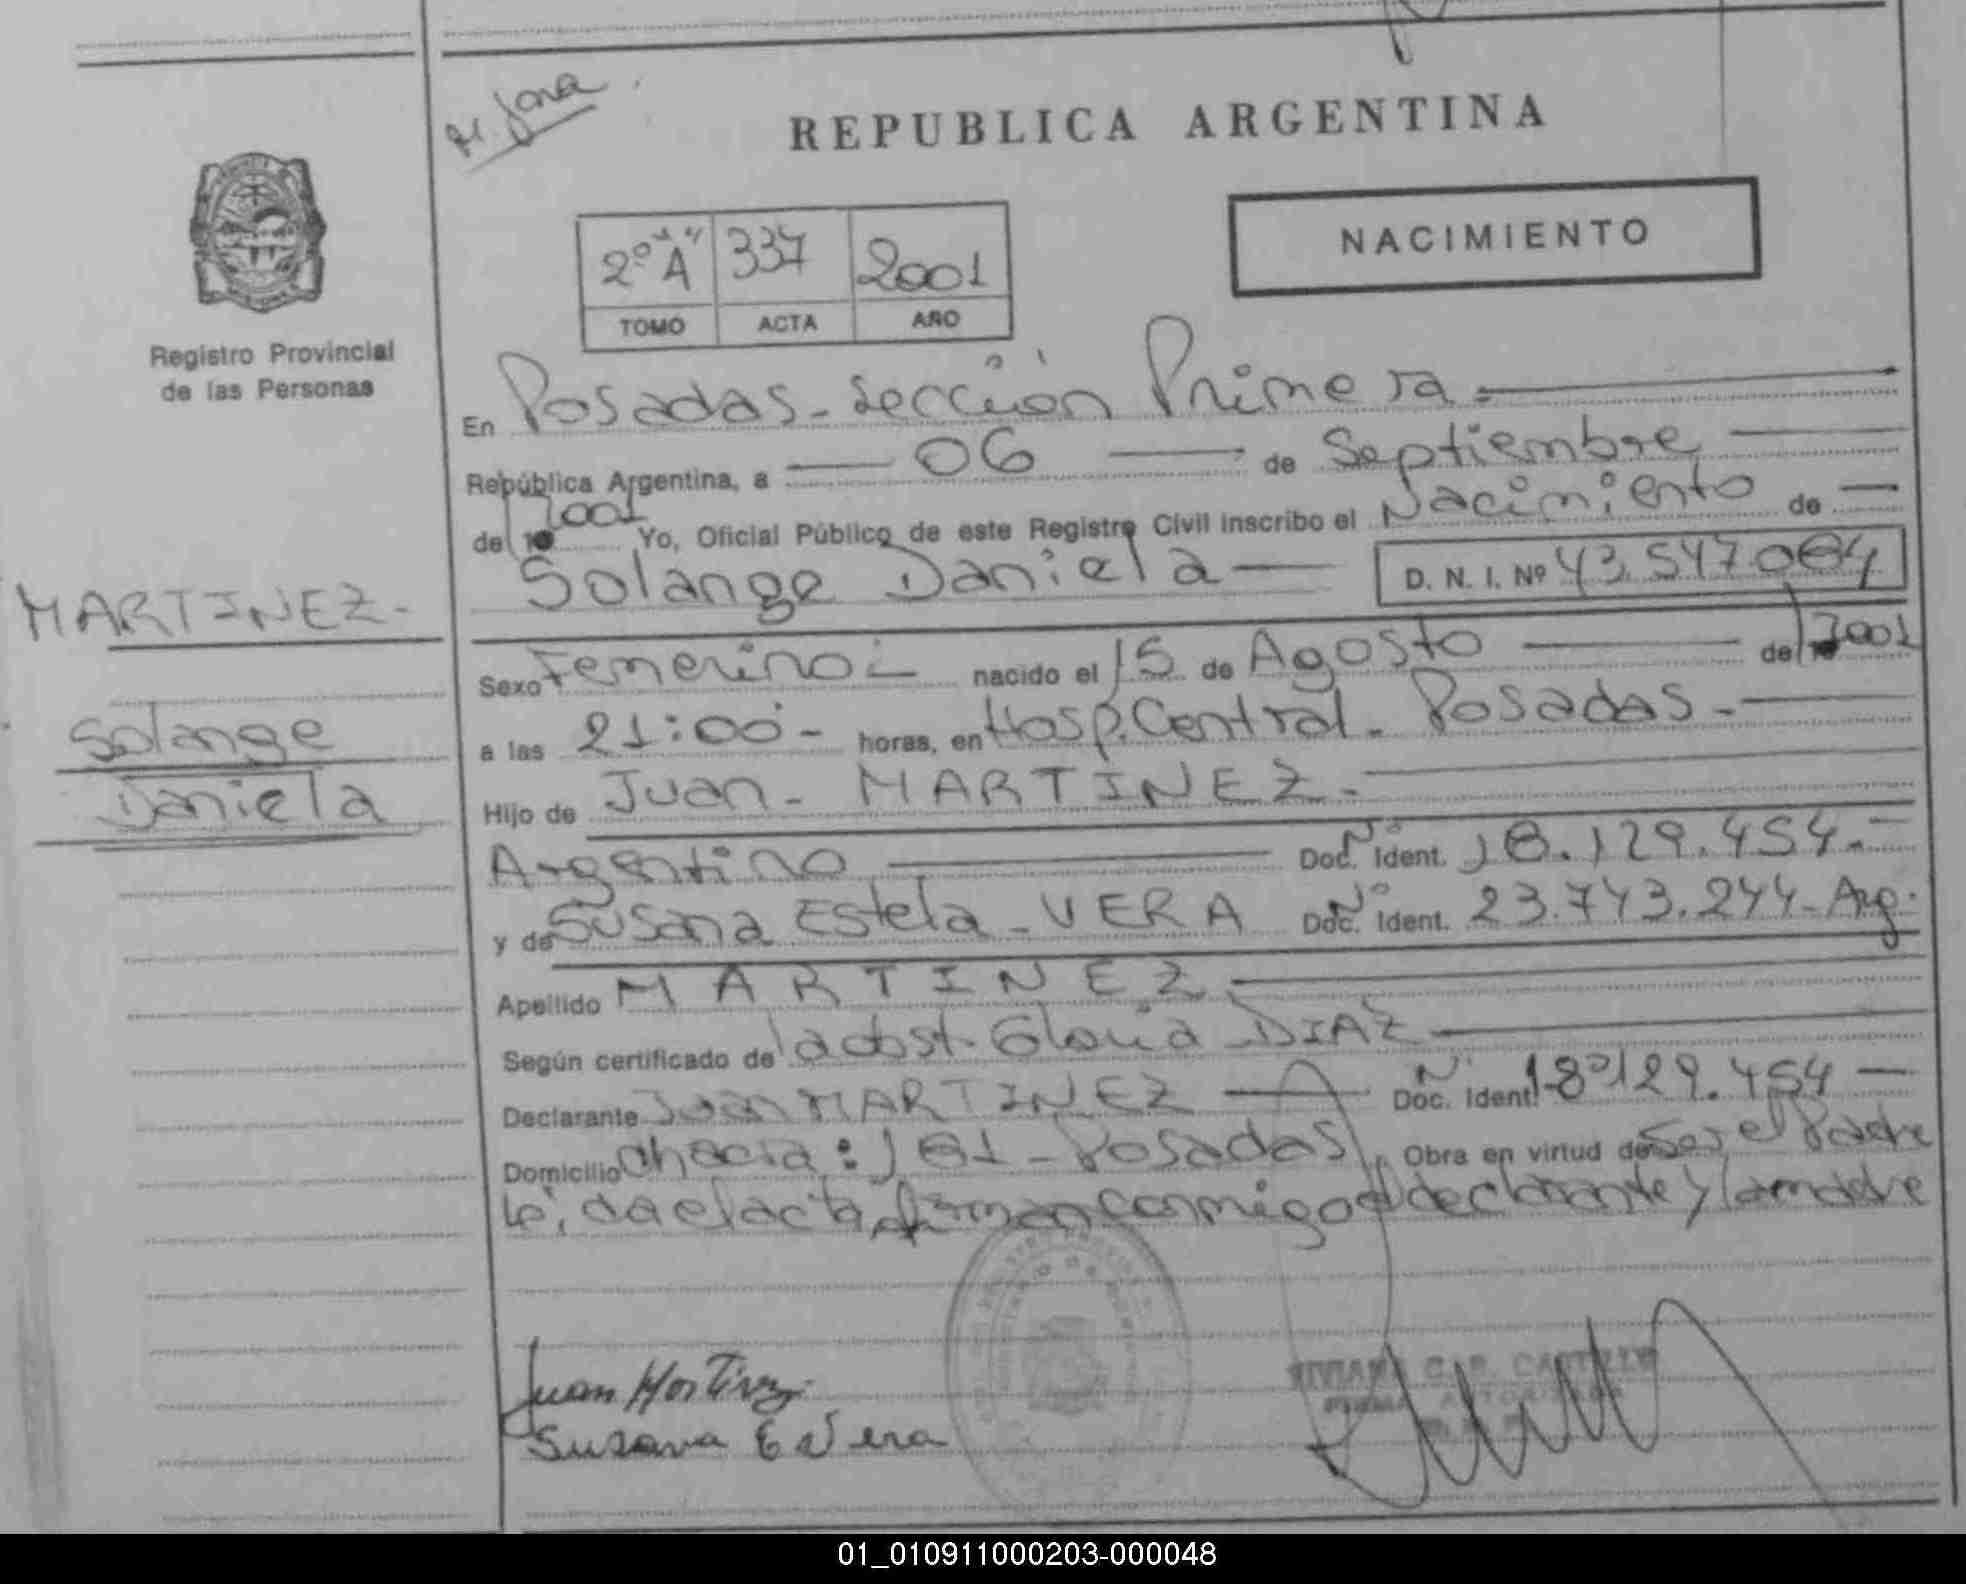 M. Jara
REPUBLICA ARGENTINA
NACIMIENTO
2º "A" 337 2001
TOMO ACTA AÑO
Registro Provincial
de las Personas
En Posadas - Sección Primera.-
República Argentina, a 06 de Septiembre
de 2001 Yo, Oficial Público de este Registro Civil inscribo el Nacimiento de
Solange Daniela D. N. I. Nº 43.547.064
MARTINEZ.-
Solange
Daniela
Sexo Femenino.- nacido el 15 de Agosto de 2001
a las 21:00- horas, en Hosp. Central - Posadas.-
Hijo de Juan - MARTINEZ.-
Argentino Doc. Ident. Nº 18.129.454.-
y de Susana Estela - VERA Doc. Ident. Nº 23.743.244-Arg.
Apellido MARTINEZ
Según certificado de la obst. Gloria DIAZ
Declarante Juan MARTINEZ Doc. Ident. Nº 18.129.454
Domicilio Chacra: 181 - Posadas Obra en virtud de Ser el Padre
Leída el acta, firman conmigo el declarante y la madre
Juan Martinez
Susana E Vera
01_010911000203-000048